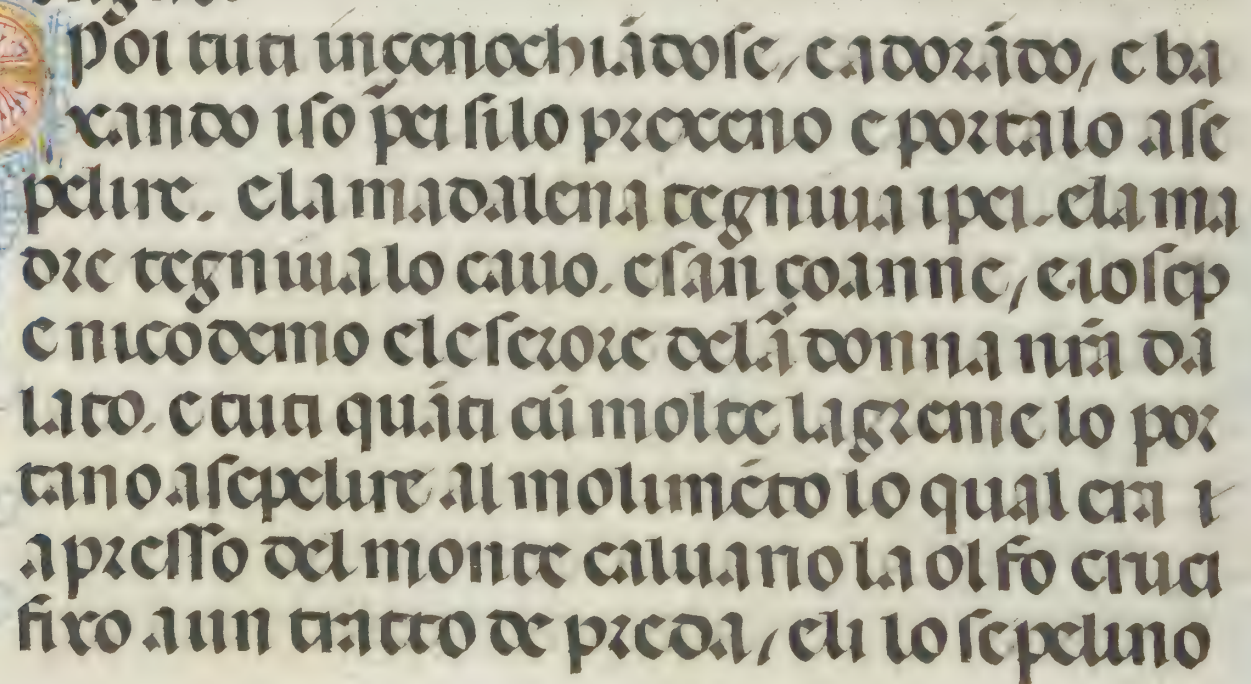 Poi tuti inçenochiãdose, e adorãdo, e ba
xando i so pei si lo prexeno e portalo a se
pelire. e la madalena tegniua i pei. e la ma
dre tegniua lo cauo. e san çoanne, e iosep
e nicodemo e le serore dela donna nr̃a da
lato. e tuti quãti cũ molte lagreme lo por
tano a sepelire al molimẽto lo qual era i
apresso del monte caluario la ol fo cruci
fixo a un tratto de preda, e li lo sepelino